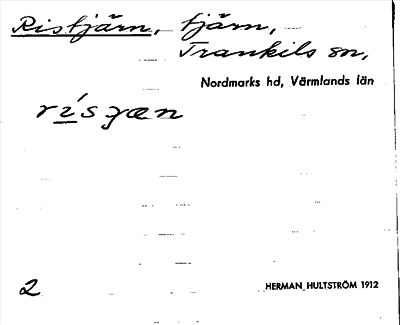 Ristjärn, tjärn,
Trankils sn,
Nordmarks hd, Värmlands län
rísjæn
2
HERMAN HULTSTRÖM 1912